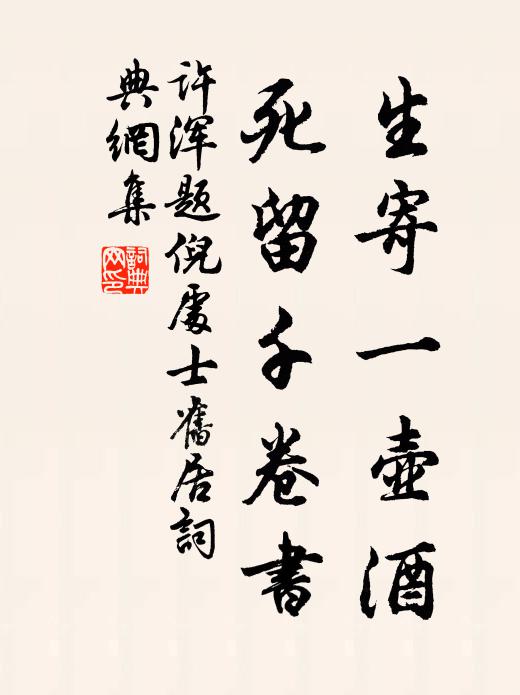 生寄一壺酒
死留千卷書
许渾題倪處士舊居詞
典網集
詞典
网印